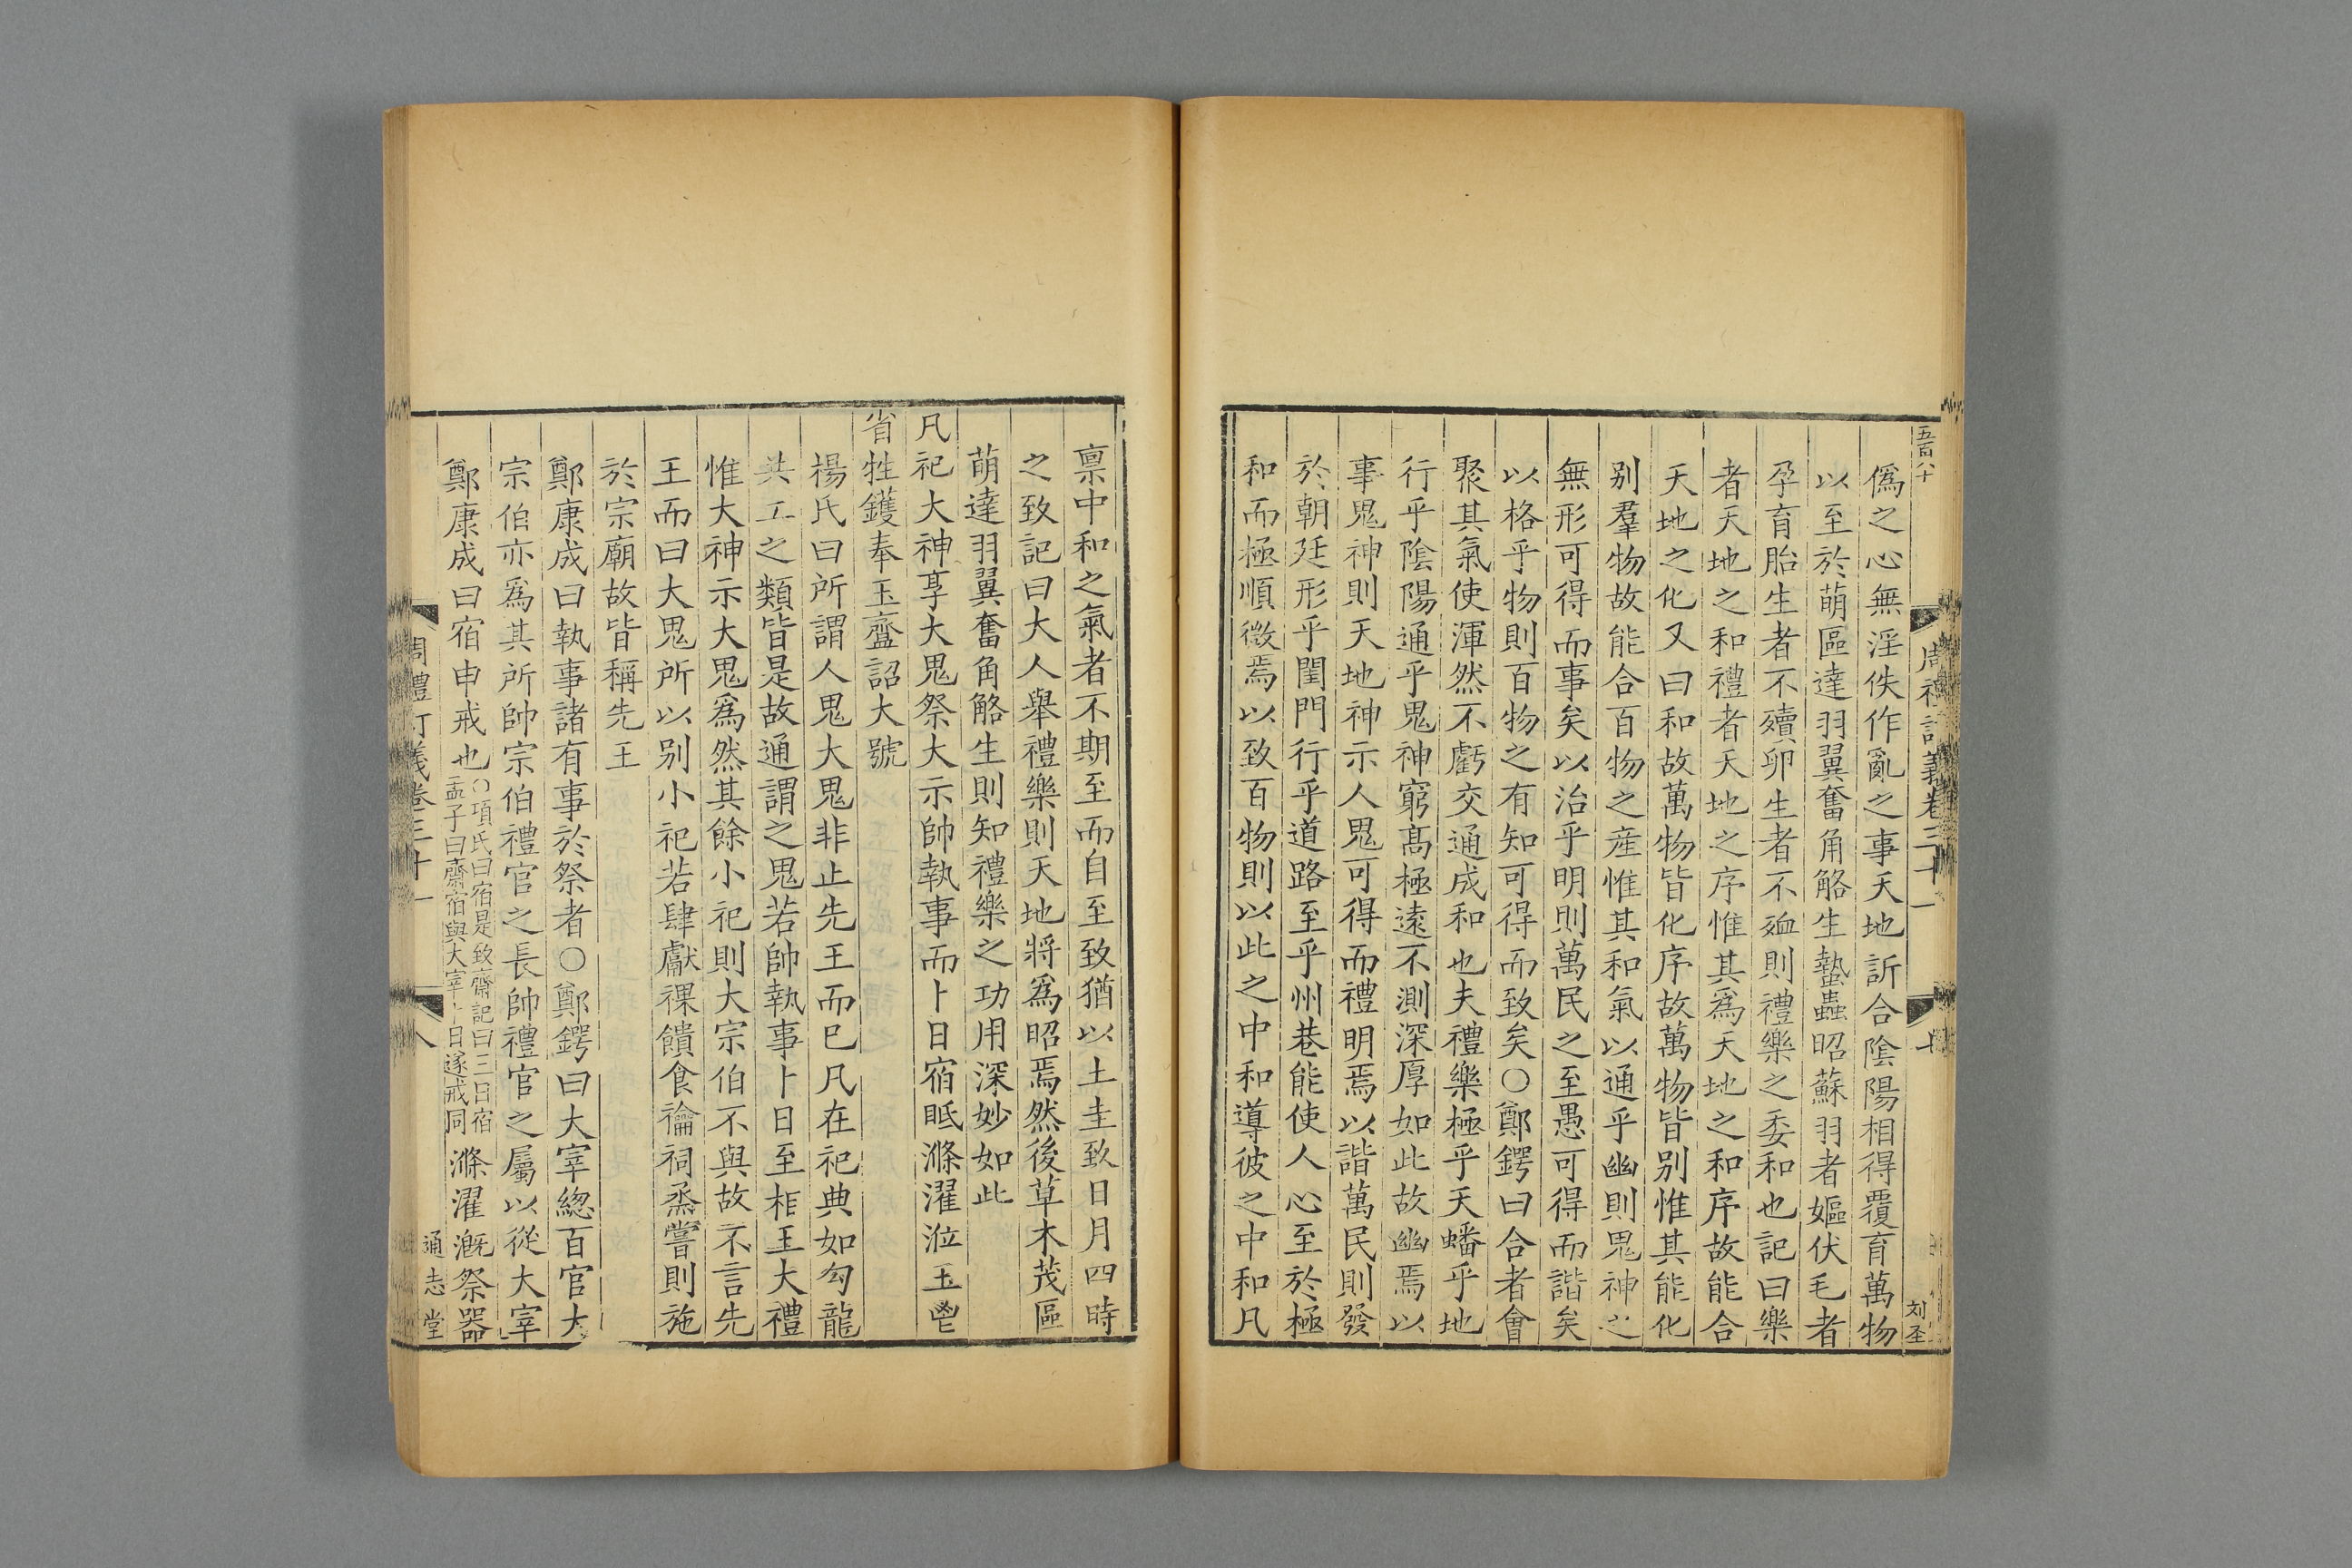 五百八十
周禮訂義卷三十一
七
刘圣
僞之心無淫佚作亂之事天地訢合隂陽相得覆育萬物
以至於萌區達羽翼奮角觡生蟄蟲昭蘇羽者嫗伏毛者
孕育胎生者不殰卵生者不殈則禮樂之委和也記曰樂
者天地之和禮者天地之序惟其爲天地之和序故能合
天地之化又曰和故萬物皆化序故萬物皆别惟其能化
别羣物故能合百物之産惟其和氣以通乎幽則鬼神之
無形可得而事矣以治乎明則萬民之至愚可得而諧矣
以格乎物則百物之有知可得而致矣○鄭鍔曰合者會
聚其氣使渾然不虧交通成和也夫禮樂極乎天蟠乎地
行乎隂陽通乎鬼神窮髙極遠不測深厚如此故幽焉以
事鬼神則天地神示人鬼可得而禮明焉以諧萬民則發
於朝廷形乎閨門行乎道路至乎州巷能使人心至於極
和而極順微焉以致百物則以此之中和導彼之中和凡
禀中和之氣者不期至而自至致猶以土圭致日月四時
之致記曰大人舉禮樂則天地將爲昭焉然後草木茂區
萌達羽翼奮角觡生則知禮樂之功用深妙如此
凡祀大神享大鬼祭大示帥執事而卜日宿眡滌濯涖玉鬯
省牲鑊奉玉齍詔大號
楊氏曰所謂人鬼大鬼非止先王而已凡在祀典如勾龍
共工之類皆是故通謂之鬼若帥執事卜日至相王大禮
惟大神示大鬼爲然其餘小祀則大宗伯不與故不言先
王而曰大鬼所以别小祀若肆獻祼饋食禴祠烝嘗則施
於宗廟故皆稱先王
鄭康成曰執事諸有事於祭者○鄭鍔曰大宰緫百官大
宗伯亦爲其所帥宗伯禮官之長帥禮官之屬以從大宰
鄭康成曰宿申戒也○項氏曰宿是致齋記曰三日宿孟子曰齋宿與大宰卜日遂戒同滌濯漑祭器
周禮訂義卷三十一
八
通志堂